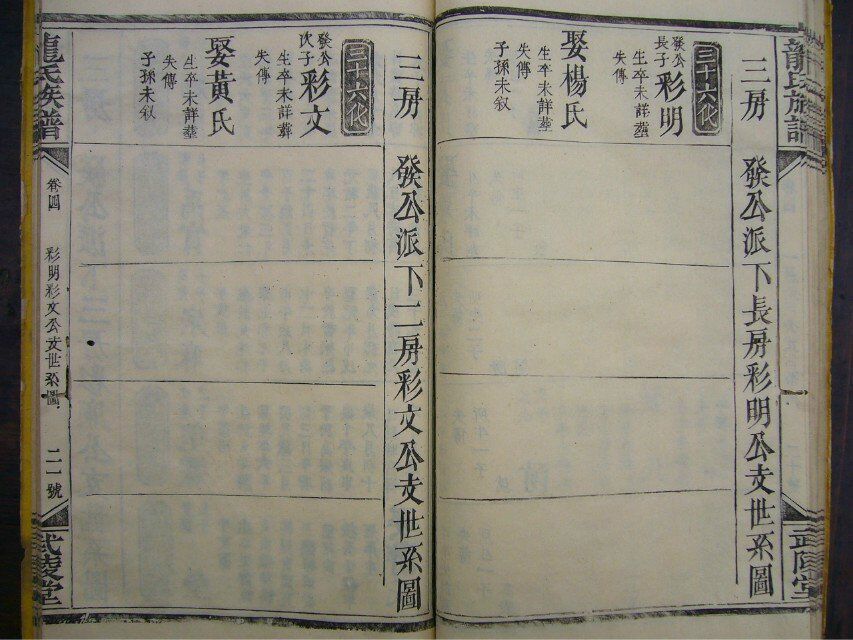 龍氏族譜
武陵堂
三房 發公派下長房彩明公支世系圖
三十六代
發公長子 彩明
生卒未詳塟
失傳
娶楊氏
生卒未詳塟
失傳
子孫未叙
三房 發公派下二房彩文公支世系圖
三十六代
發公次子 彩文
生卒未詳葬
失傳
娶黃氏
生卒未詳葬
失傳
子孫未叙
龍氏族譜
卷四
彩明彩文公支世系圖
二一號
武陵堂